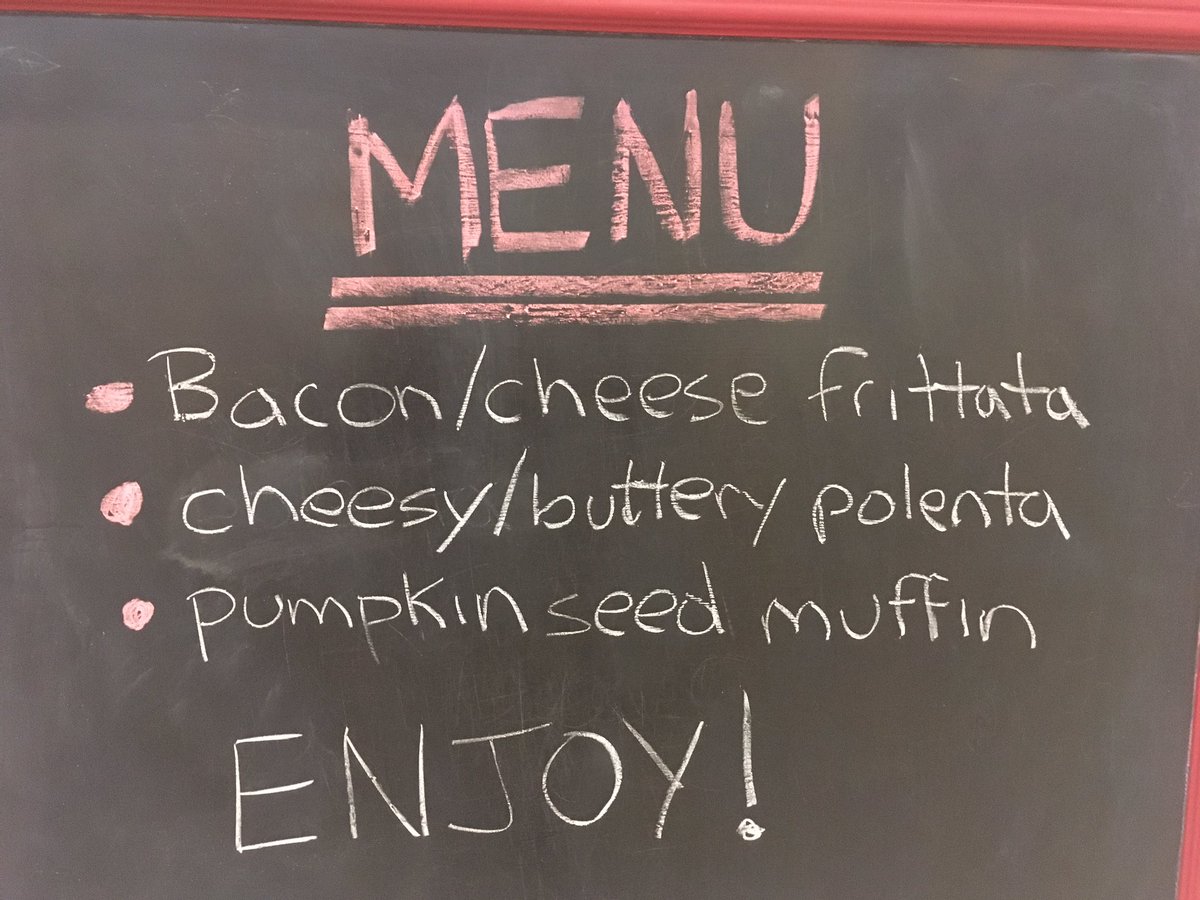 MENU
• Bacon/cheese frittata
• cheesy/buttery polenta
• pumpkin seed muffin
ENJOY!